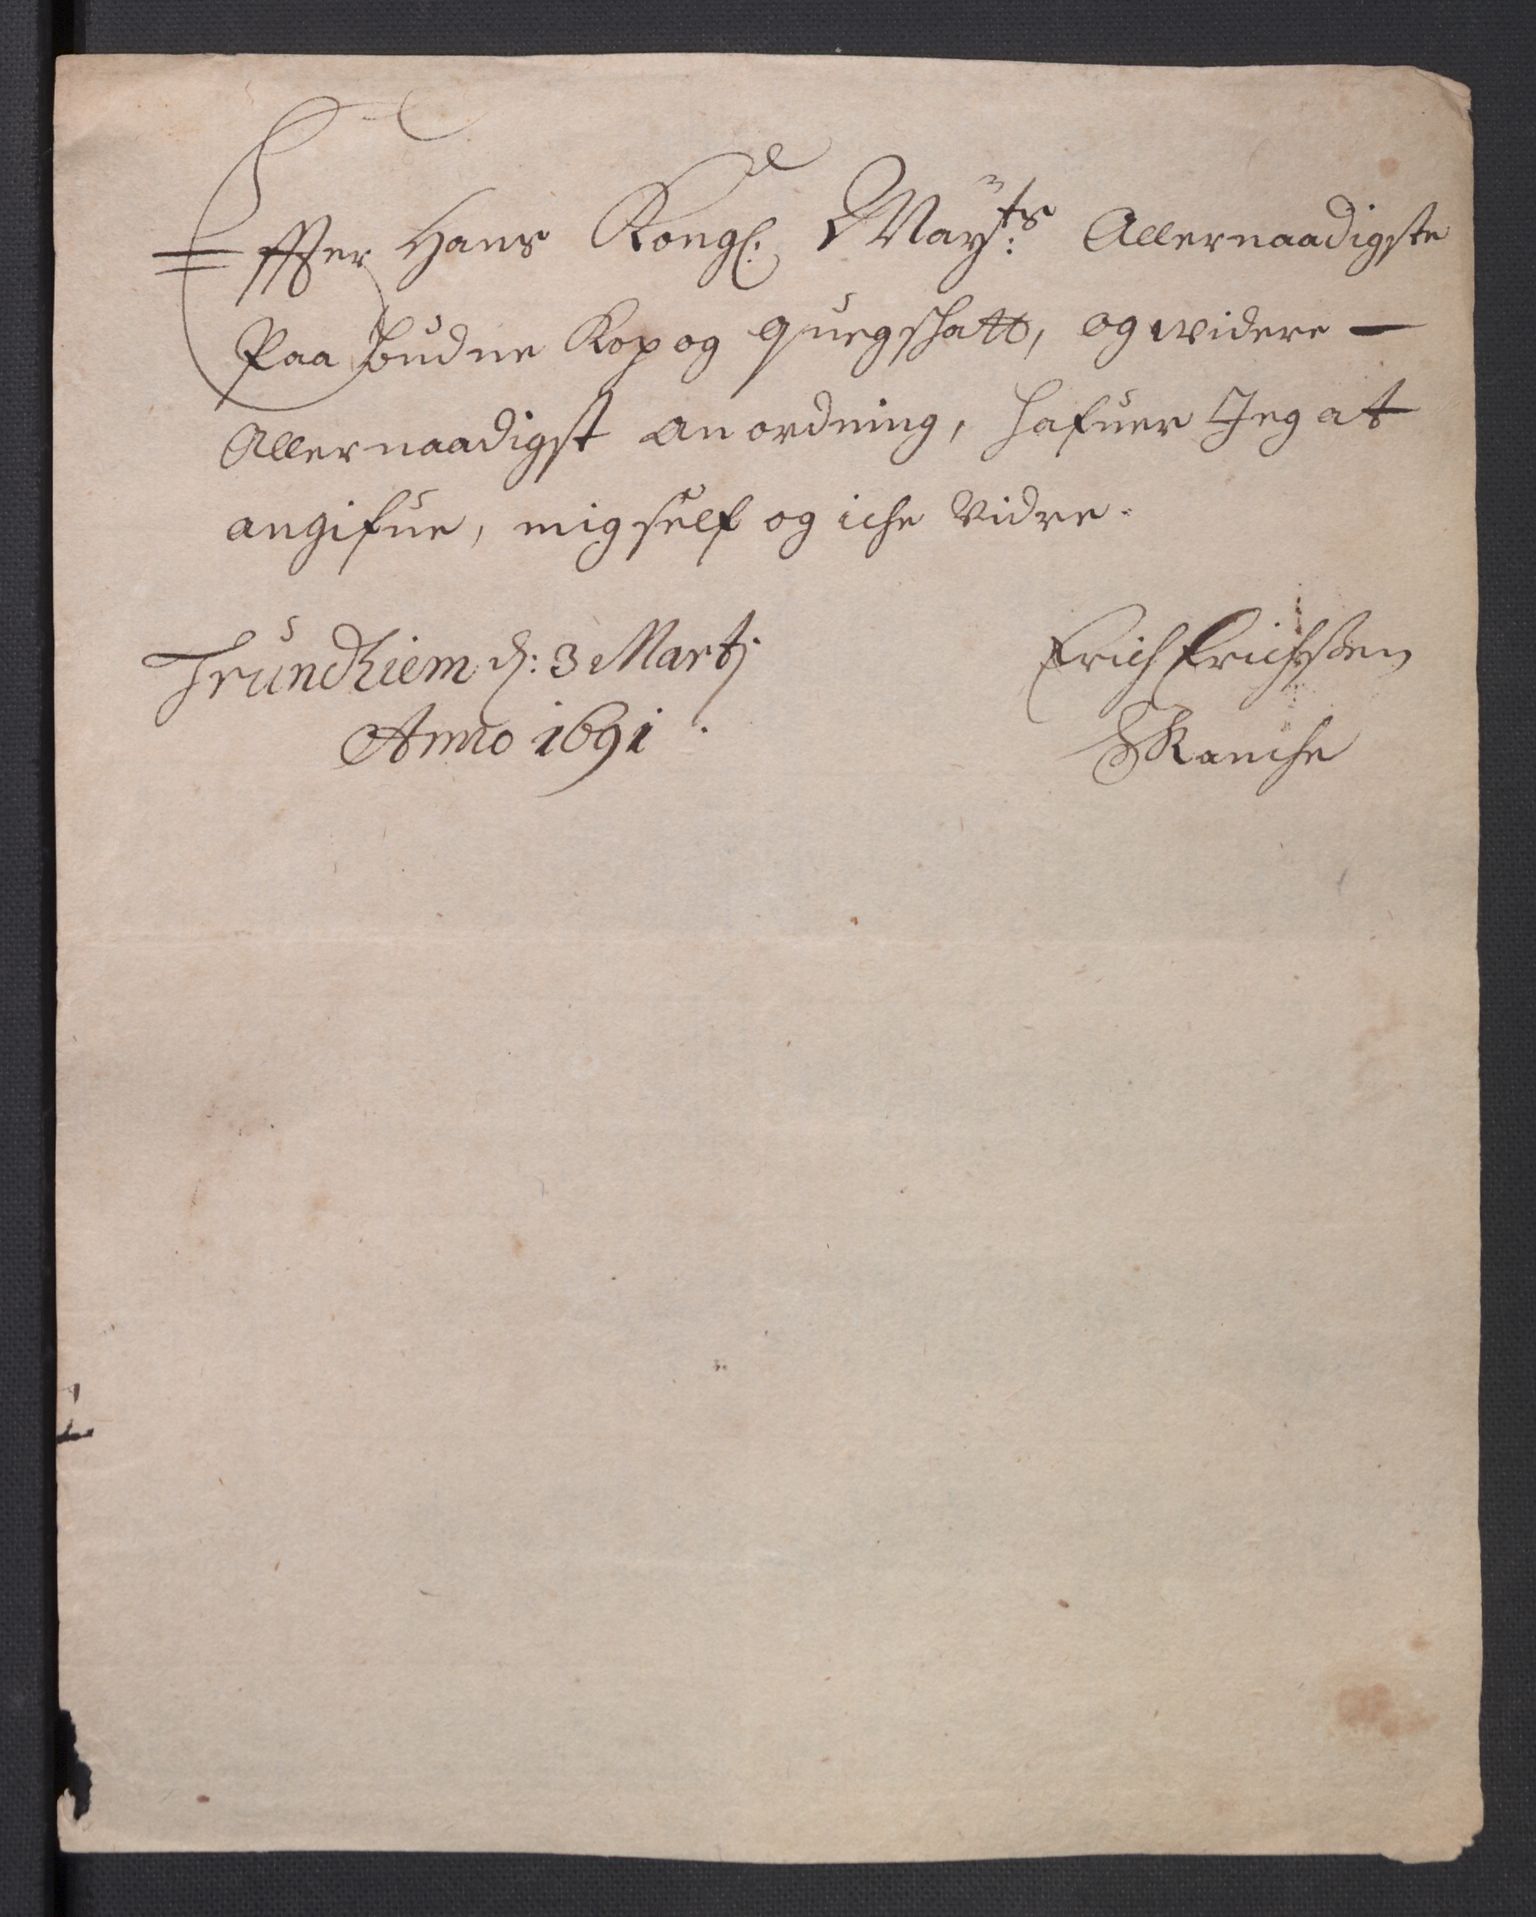 Effter Hans Kongl. Mayts: Allernaadigste
Paa budne Kop og quegshatt, og widere —
Allernaadigst anordning, hafuer Jeg at
angifue, mig self og iche Vidre.
Trundhiem d: 3 Martj
Anno 1691.
Erich Erichsøen
Skanche